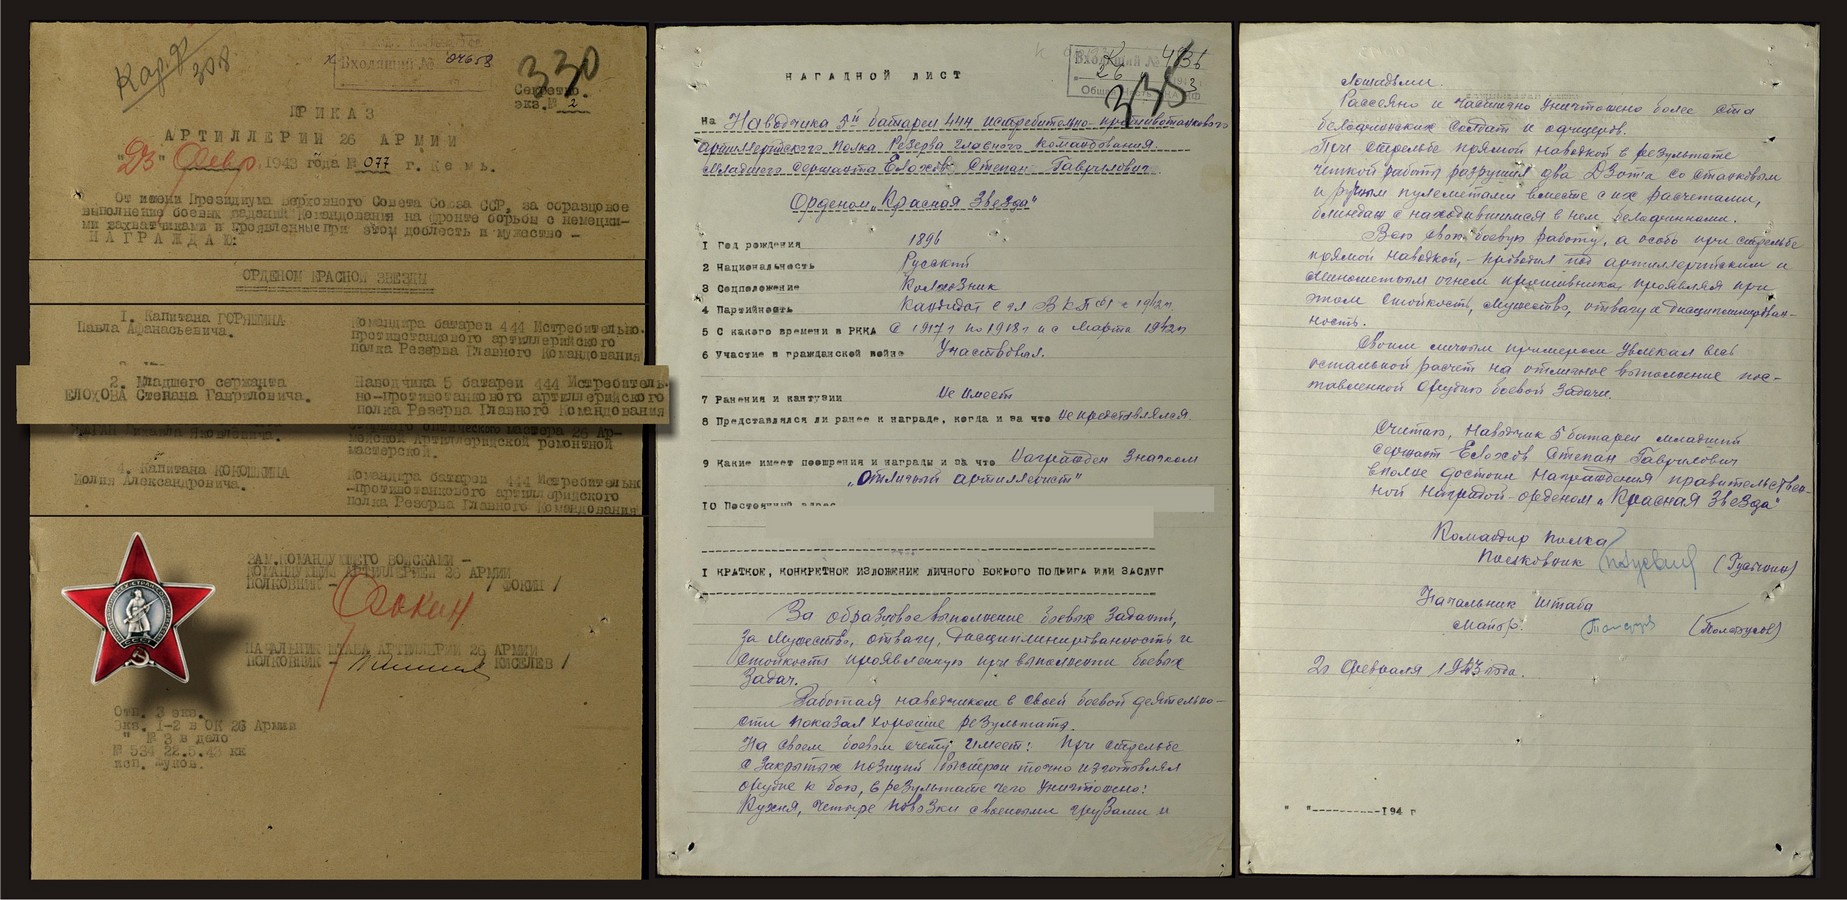 Кар.Ф
308
Входящий № 04658
330
Секретно.
экз.№ 2
ПРИКАЗ
АРТИЛЛЕРИИ 26 АРМИИ
"23" Февр. 1943 года № 077 г. Кемь.
От имени Президиума Верховного Совета Союза ССР, за образцовое
выполнение боевых заданий Командования на фронте борьбы с немецки-
ми захватчиками и проявленные при этом доблесть и мужество -
НАГРАЖДАЮ:
ОРДЕНОМ КРАСНОЙ ЗВЕЗДЫ
1. Капитана ГОРЯШИНА
Павла Афанасьевича.
Командира батареи 444 Истребительно-
Противотанкового артиллерийского
полка Резерва Главного Командования
2. Младшего сержанта
ЕЛОХОВА Степана Гавриловича.
Наводчика 5 батареи 444 Истребитель-
но-противотанкового артиллерийского
полка Резерва Главного Командования
Михаила Яковлевича.
оптического мастера 26 Ар-
мейской Артиллерийской ремонтной
мастерской.
4. Капитана КОКОШКИНА
Юлия Александровича.
Командира батареи 444 Истребительно
-противотанкового артиллерийского
полка Резерва Главного Командования
ЗАМ.КОМАНДУЮЩЕГО ВОЙСКАМИ -
КОМАНДУЮЩИЙ АРТИЛЛЕРИЕЙ 26 АРМИИ
ПОЛКОВНИК - / ФОКИН /
НАЧАЛЬНИК ШТАБА АРТИЛЛЕРИИ 26 АРМИИ
ПОЛКОВНИК - КИСЕЛЕВ /
Отп. 3 экз.
Экз. 1-2 в ОК 26 Армии
" № 3 в дело
№ 534 22.5.43 кк
исп.
НАГАДНОЙ ЛИСТ
Входящий № 4136
26
335
На Наводчика 5й батареи 444 истребительно-противотанкового
артиллерийского полка Резерва главного командования
младшего сержанта Елохов Степан Гаврилович
Орденом „Красная Звезда"
I Год рождения 1896
2 Национальность Русский
3 Соцположение Колхозник
4 Партийность Кандидат с 1942г
5 С какого времени в РККА С 1917г по 1918г и с Марта 1942г
6 Участие в гражданской войне Участвовал.
7 Ранения и контузии Не имеет
8 Представлялся ли ранее к награде, когда и за что Не представлялся.
9 Какие имеет поощрения и награды и за что Награжден значком
„Отличный артиллерист"
10 Постоянный адрес
I КРАТКОЕ, КОНКРЕТНОЕ ИЗЛОЖЕНИЕ ЛИЧНОГО БОЕВОГО ПОДВИГА ИЛИ ЗАСЛУГ
За образцовое выполнение боевых заданий,
за мужество, отвагу, дисциплинированность и
стойкость проявленную при выполнении боевых
задач.
Работая наводчиком в своей боевой деятельно-
сти показал хорошие результаты.
На своем боевом счету имеет: При стрельбе
с закрытых позиций быстро и точно изготовлял
орудие к бою, в результате чего уничтожено:
Кухня, четыре повозки с военными грузами и
лошадьми.
Рассеяно и частично уничтожено более ста
белофинских солдат и офицеров.
При стрельбе прямой наводкой в результате
четкой работы разрушил два Дзота со станковым
и ручным пулеметами вместе с их расчетами,
блиндаж с находившимися в нем белофиннами.
Всю свою боевую работу, а особо при стрельбе
прямой наводкой, - проводил под артиллерийским и
минометным огнем противника, проявляя при
этом стойкость, мужество, отвагу и дисциплинирован-
ность.
Своим личным примером увлекал весь
остальной расчет на отличное выполнение пос-
тавленной орудию боевой задачи.
Считаю, Наводчик 5 батареи младший
сержант Елохов Степан Гаврилович
вполне достоин награждения правительствен-
ной наградой - орденом „Красная Звезда"
Командир полка
Полковник
Начальник штаба
Майор:
22 Февраля 1943 года.
" "-----------194 г